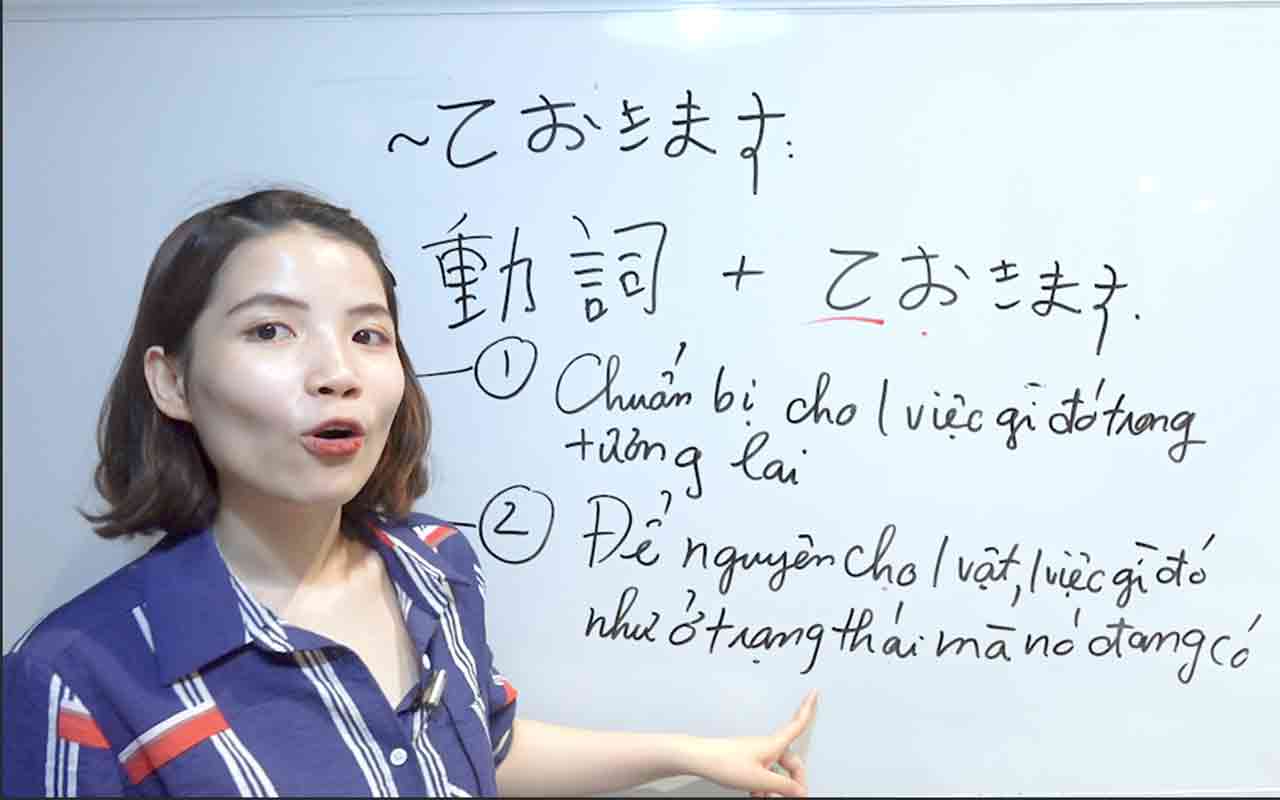 ~ておきます:
動詞 + ておきます.
① Chuẩn bị cho 1 việc gì đó trong
tương lai
② Để nguyên cho 1 vật, 1 việc gì đó
như ở trạng thái mà nó đang có